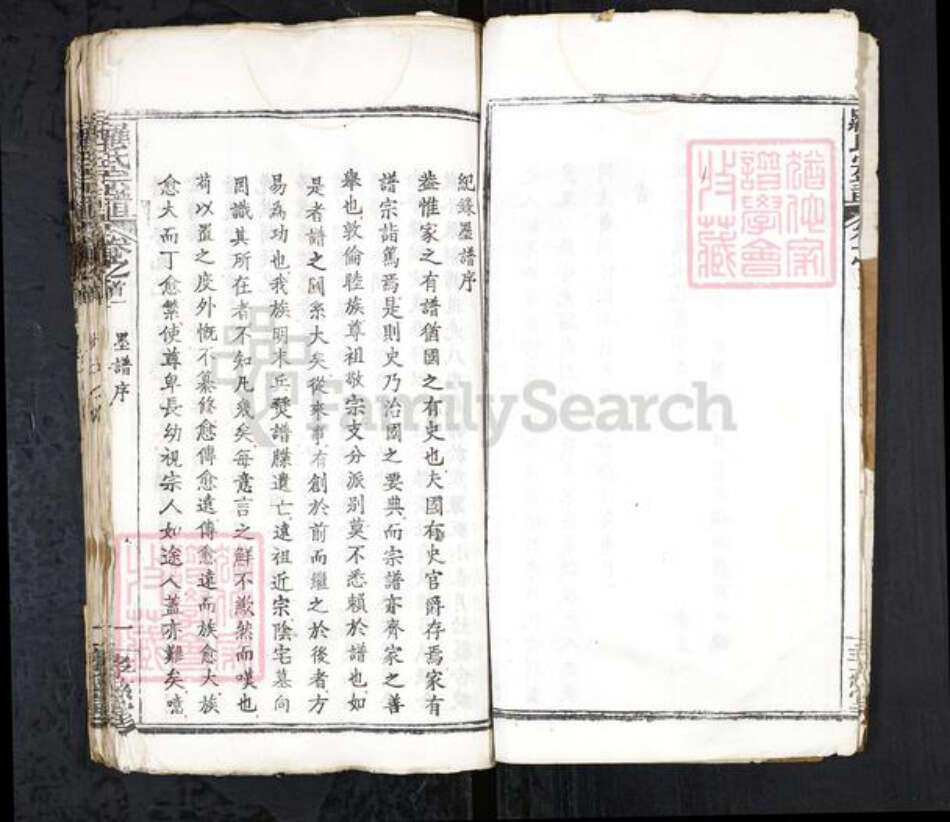 紀錄墨譜序
盖惟家之有譜猶國之有史也夫國有史官爵存焉家有
譜宗詣篤焉是則史乃治國之要典而宗譜亦齊家之善
舉也敦倫睦族尊祖敬宗支分派别莫不悉賴於譜也如
是者譜之關系大矣從來事有創於前而繼之於後者方
易為功也我族明末兵燹譜牒遺亡遠祖近宗陰宅墓向
罔識其所在者不知凡幾矣每意言之鮮不歉然而嘆也
苟以置之度外慨不纂修愈傳愈遠傳愈遠而族愈大族
愈大而丁愈繁使尊卑長幼視宗人如途人蓋亦難矣噫
羅氏宗譜
卷之首
墨譜序
一
猶他家
譜學會
收藏
猶他家
譜學會
收藏
FamilySearch